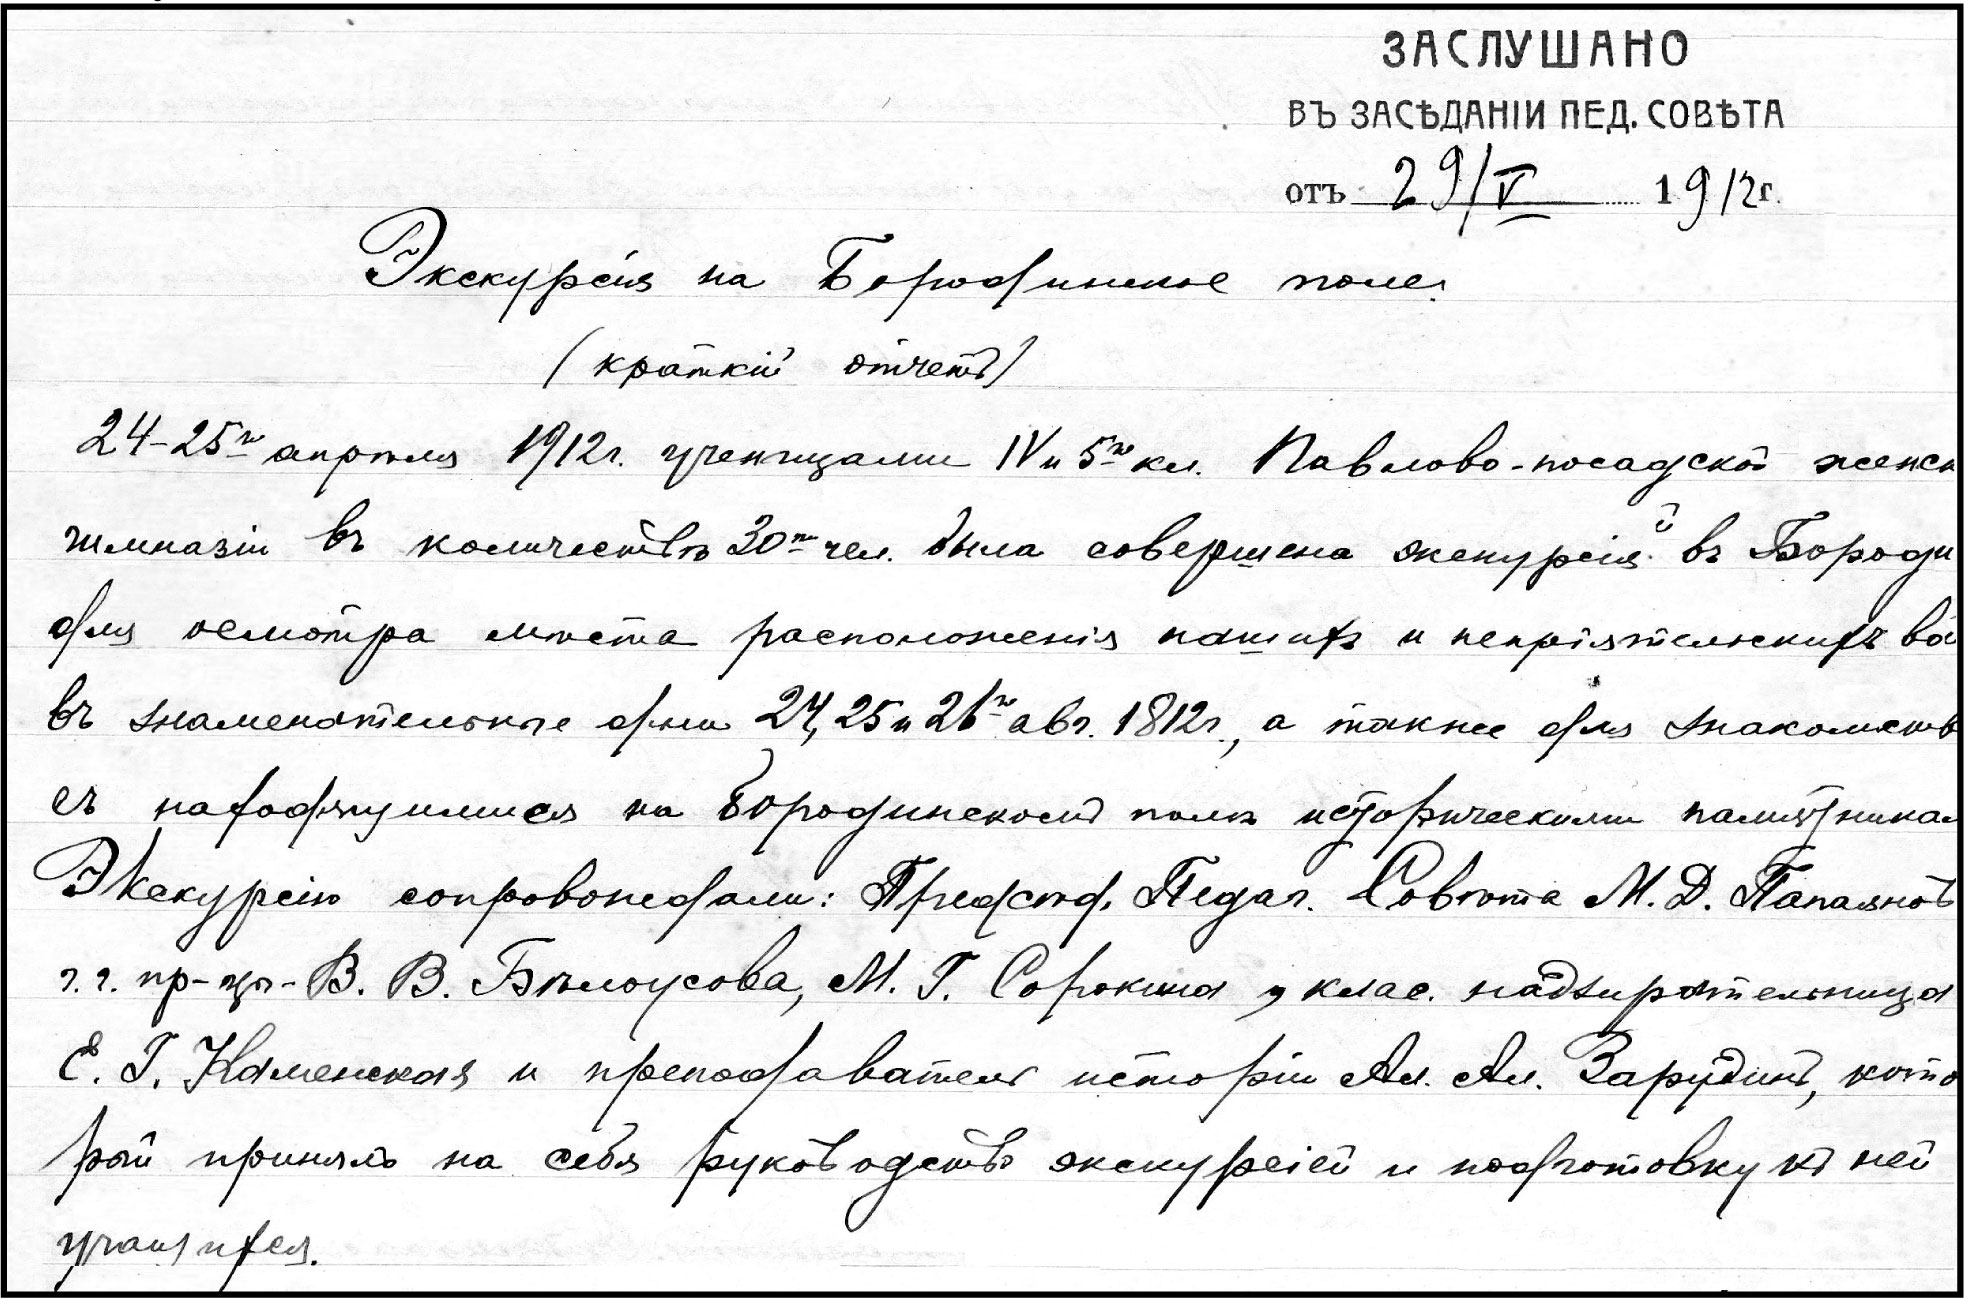 ЗАСЛУШАНО
ВЪ ЗАСѢДАНІИ ПЕД. СОВѢТА
отъ 29/V 1912г.
Экскурсія на Бородинское поле.
(краткій отчетъ)
24-25го апрѣля 1912г. ученицами IV и 5го кл. Павлово-посадской женск
гимназіи въ количествѣ 30ти чел. была совершена экскурсія въ Бороди
для осмотра мѣста расположенія нашихъ и непріятельскихъ во
въ знаменательные дни 24, 25 и 26го авг. 1812г., а также для знакомств
съ находящимися на Бородинскомъ полѣ историческими памятникам
Экскурсію сопровождали: Предсѣд. Педаг. Совѣта М. Д. Папаяновъ
г.г. пр-цы- В. В. Бѣлоусова, М. Г. Сорокина, клас. надзирательница
Е. Г. Каменская и преподаватель исторіи Ал. Ал. Зарудинъ, кото
рый принялъ на себя руководство экскурсіей и подготовку къ ней
учащихся.